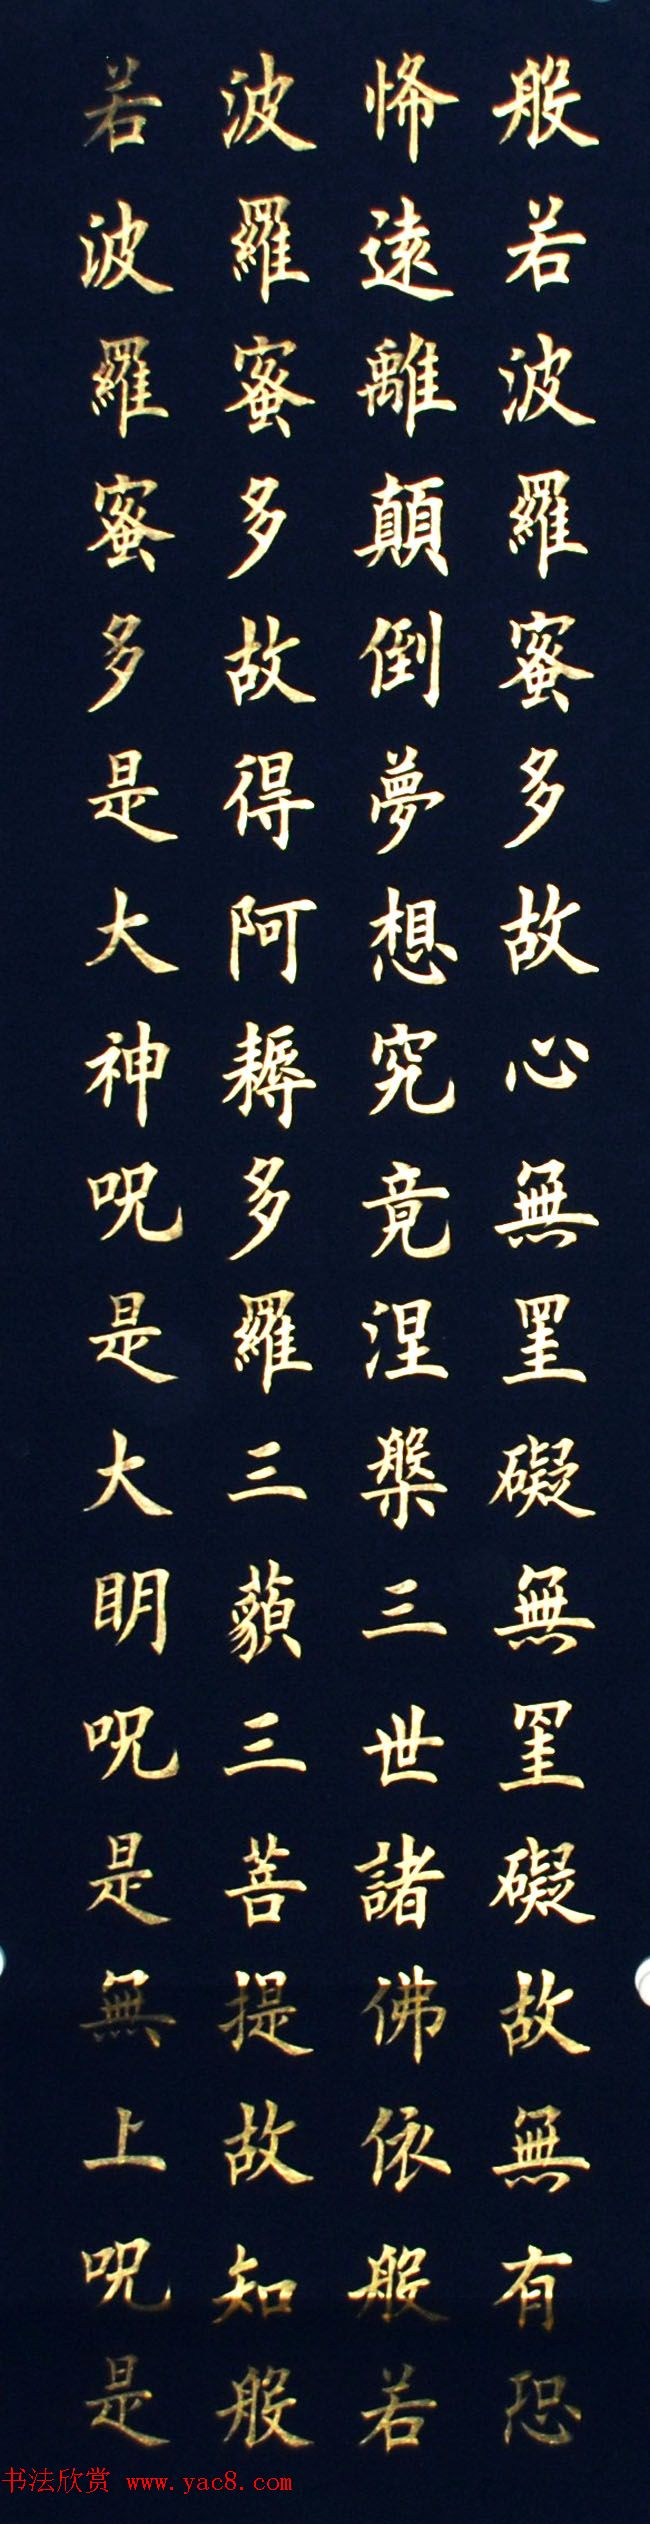 般若波羅蜜多故心無罣礙無罣礙故無有恐
怖遠離顛倒夢想究竟涅槃三世諸佛依般若
波羅蜜多故得阿耨多羅三藐三菩提故知般
若波羅蜜多是大神咒是大明咒是無上咒是
书法欣赏 www.yac8.com